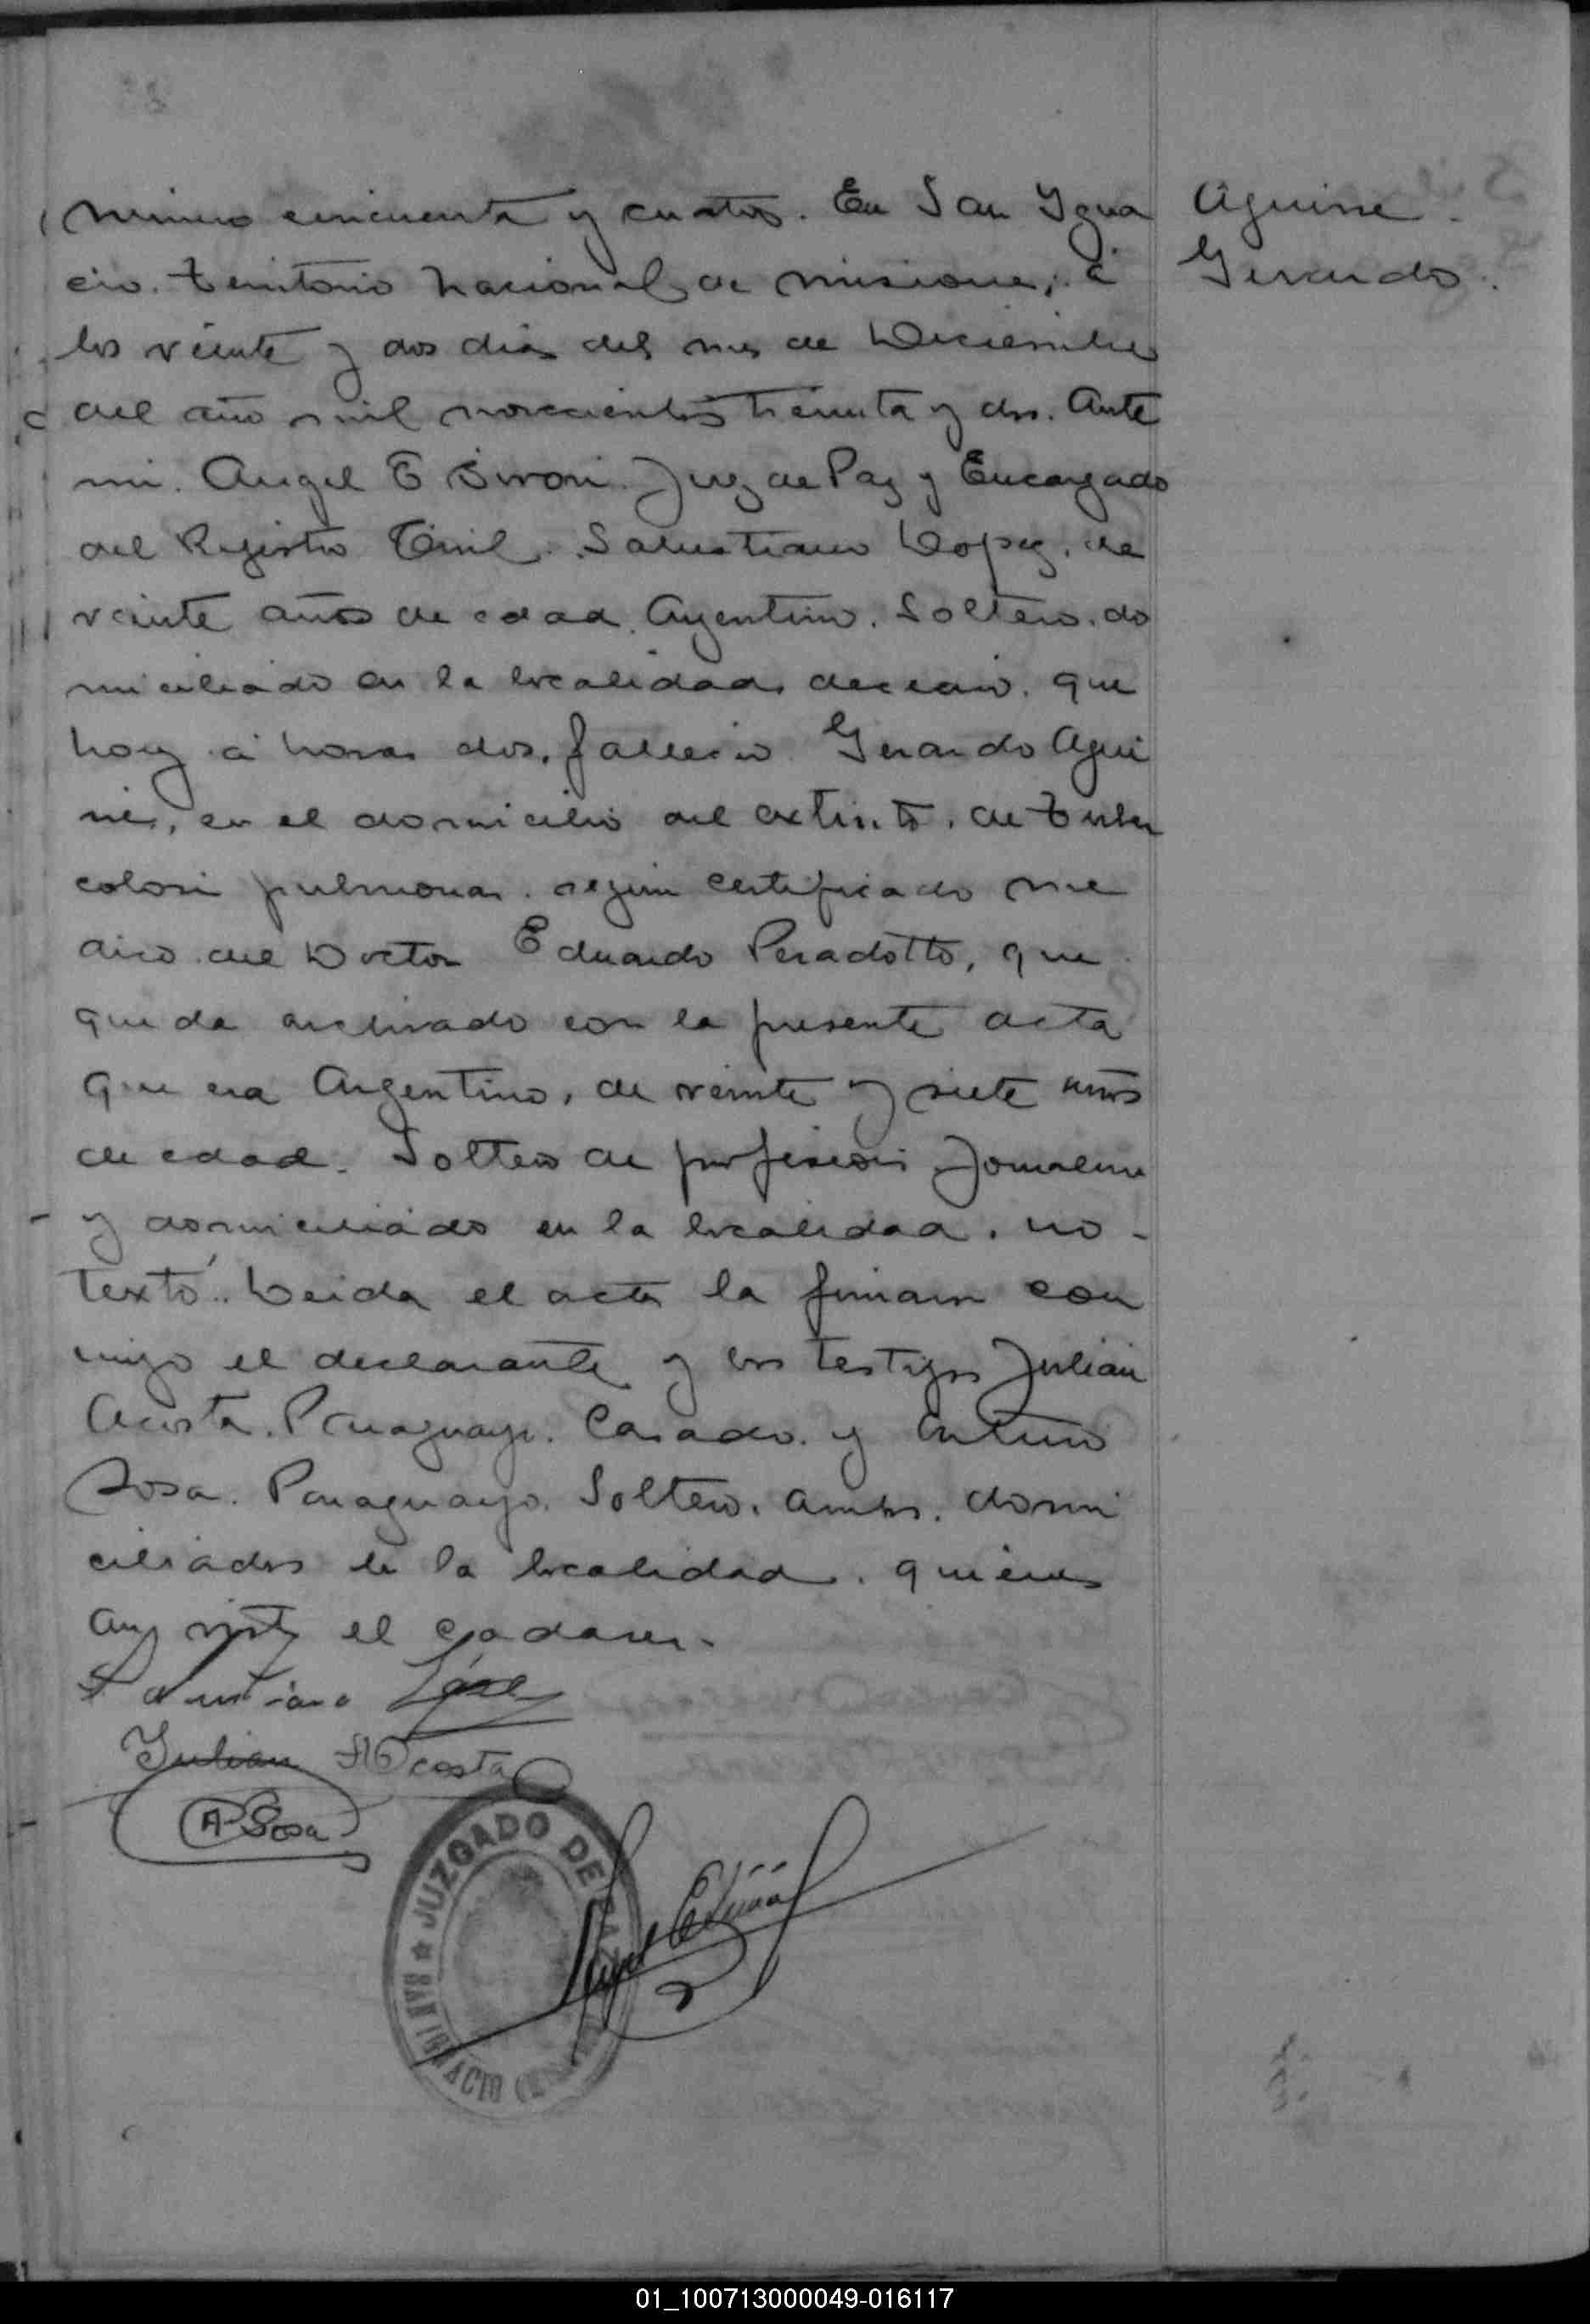 Número cincuenta y cuatro. En San Igna
cio. Territorio Nacional de Misiones, á
los veinte y dos dias del mes de Diciembre
del año mil novecientos treinta y dos. Ante
mi. Angel E Juez de Paz y Encargado
del Registro Civil. Salustiano Lopez, de
veinte años de edad. Argentino. Soltero. do
miciliado en la localidad declaró. que
hoy á horas dos. falleció Gerardo Agui
rre, en el domicilio del extinto. de tuber
colosi pulmonar. segun certificado me
dico del Doctor Eduardo Peradotto, que
queda archivado con la presente acta
que era Argentino, de veinte y siete años
de edad. Soltero de profesión Jornalero
y domiciliado en la localidad. no -
textó. Leida el acta la firman con
migo el declarante y los testigos Julian
Acosta. Paraguayo. Casado. y Arturo
Sosa. Paraguayo. Soltero. ambos. domi
ciliados la localidad. quienes
an visto el cadaver.
Salustiano López
Julian Acosta
A Sosa
JUZGADO DE PAZ
SAN IGNACIO
Aguirre
Gerardo.
01_100713000049-016117